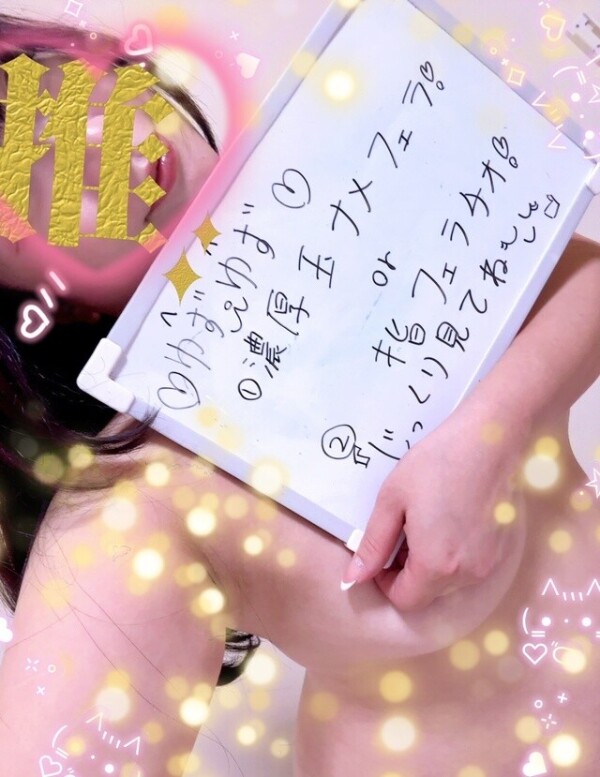 ♡ゆずぴゆず♡
①濃厚玉ナメフェラ♡
or
②指フェラチオ♡
じっくり見てね